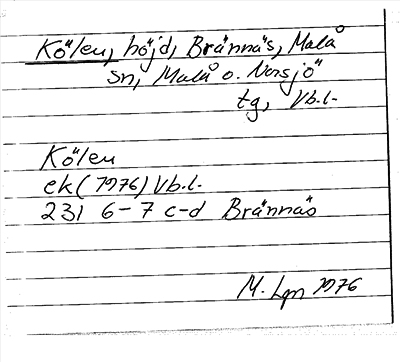 Kölen, höjd, Brännäs, Malå
sn, Malå o. Norsjö
tg, Vb.l.
Kölen
ek (1976) Vb.l.
231 6-7 c-d Brännäs
M. Lgn 1976